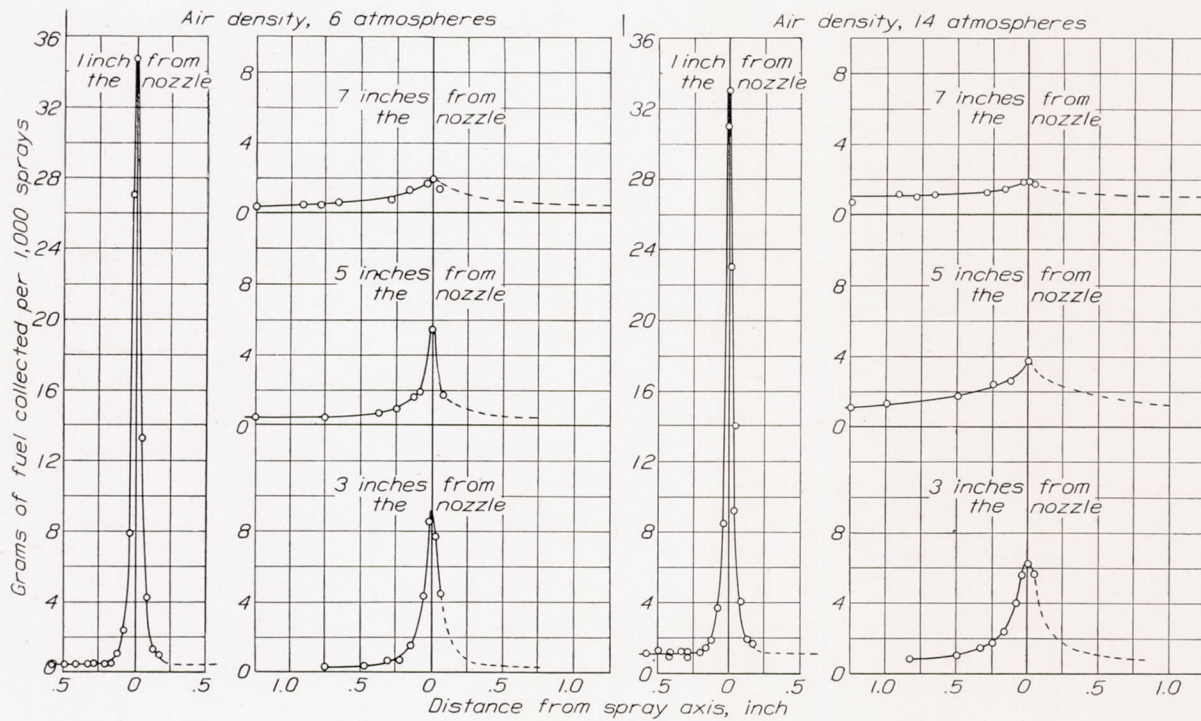 Air density, 6 atmospheres
Air density, 14 atmospheres
Grams of fuel collected per 1,000 sprays
36
32
28
24
20
16
12
8
4
0
1 inch from
the nozzle
.5 0 .5
8
4
0
7 inches from
the nozzle
8
4
0
5 inches from
the nozzle
8
4
0
3 inches from
the nozzle
1.0 .5 0 .5 1.0
36
32
28
24
20
16
12
8
4
0
1 inch from
the nozzle
.5 0 .5
8
4
0
7 inches from
the nozzle
8
4
0
5 inches from
the nozzle
8
4
0
3 inches from
the nozzle
1.0 .5 0 .5 1.0
Distance from spray axis, inch